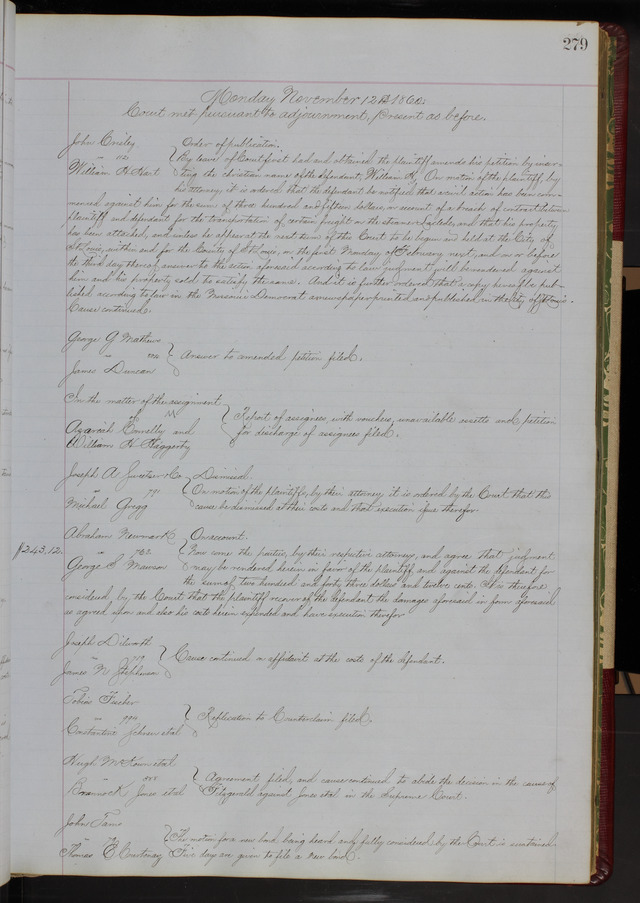 279
Monday November 12th 1860.
Court met pursuant to adjournment, present as before.
John Ensley
vs 112
William H Hart
Order of publication.
By leave of Court first had and obtained the plaintiff amends his petition by inser-
ting the christian name of the defendant, William H. On motion of the plaintiff, by
his attorney it is ordered that the defendant be notified that a civil action has been com-
menced against him for the sum of three hundred and fifteen dollars, on account of a breach of contract between
plaintiff and defendant for the transportation of certain freight on the steamer and that his property
has been attached, and unless he appear at the next term of this Court to be begun and held at the City of
St Louis, within and for the County of St Louis, on the first Monday of February next, and on or before
the third day thereof answer to the action aforesaid according to law judgment will be rendered against
him and his property sold to satisfy the same. And it is further ordered that a copy hereof be pub-
lished according to law in the Missouri Democrat a newspaper printed and published in the city of St Louis.
Cause continued.
George G Mathews
vs
James Duncan
Answer to amended petition filed.
In the matter of the assignment
of
Connolly and
William H Haggerty
Report of assignee, with vouchers, unavailable assetts and petition
for discharge of assignee filed.
Joseph A Sweetser & Co
vs 791
Michael Gregg
Dismissal.
On motion of the plaintiffs, by their attorney it is ordered by the Court that this
cause be dismissed at their costs and that execution issue therefor
$243.12.
Abraham Newmark
vs 762
George S Mawson
On account.
Now come the parties, by their respective attorneys, and agree that judgment
may be rendered herein in favor of the plaintiff and against the defendant for
the sum of two hundred and forty three dollars and twelve cents. It is therefore
considered by the Court that the plaintiff recover of the defendant the damages aforesaid in form aforesaid
so agreed upon and also his costs herein expended and have execution therefor
Joseph Dilworth
vs 719
James N Stephenson
Cause continued on affidavit at the costs of the defendant.
Tobias Fischer
vs 794
Constantine et al
Replication to Counterclaim filed.
Hugh McKown et al
vs
Jones et al
Agreement filed, and cause continued to abide the decision in the cause of
Fitzgerald against Jones et al in the Supreme Court.
John Tams
vs
Thomas E Courtenay
The motion for a new bond being heard and fully considered by the Court is sustained
Five days are given to file a new bond.